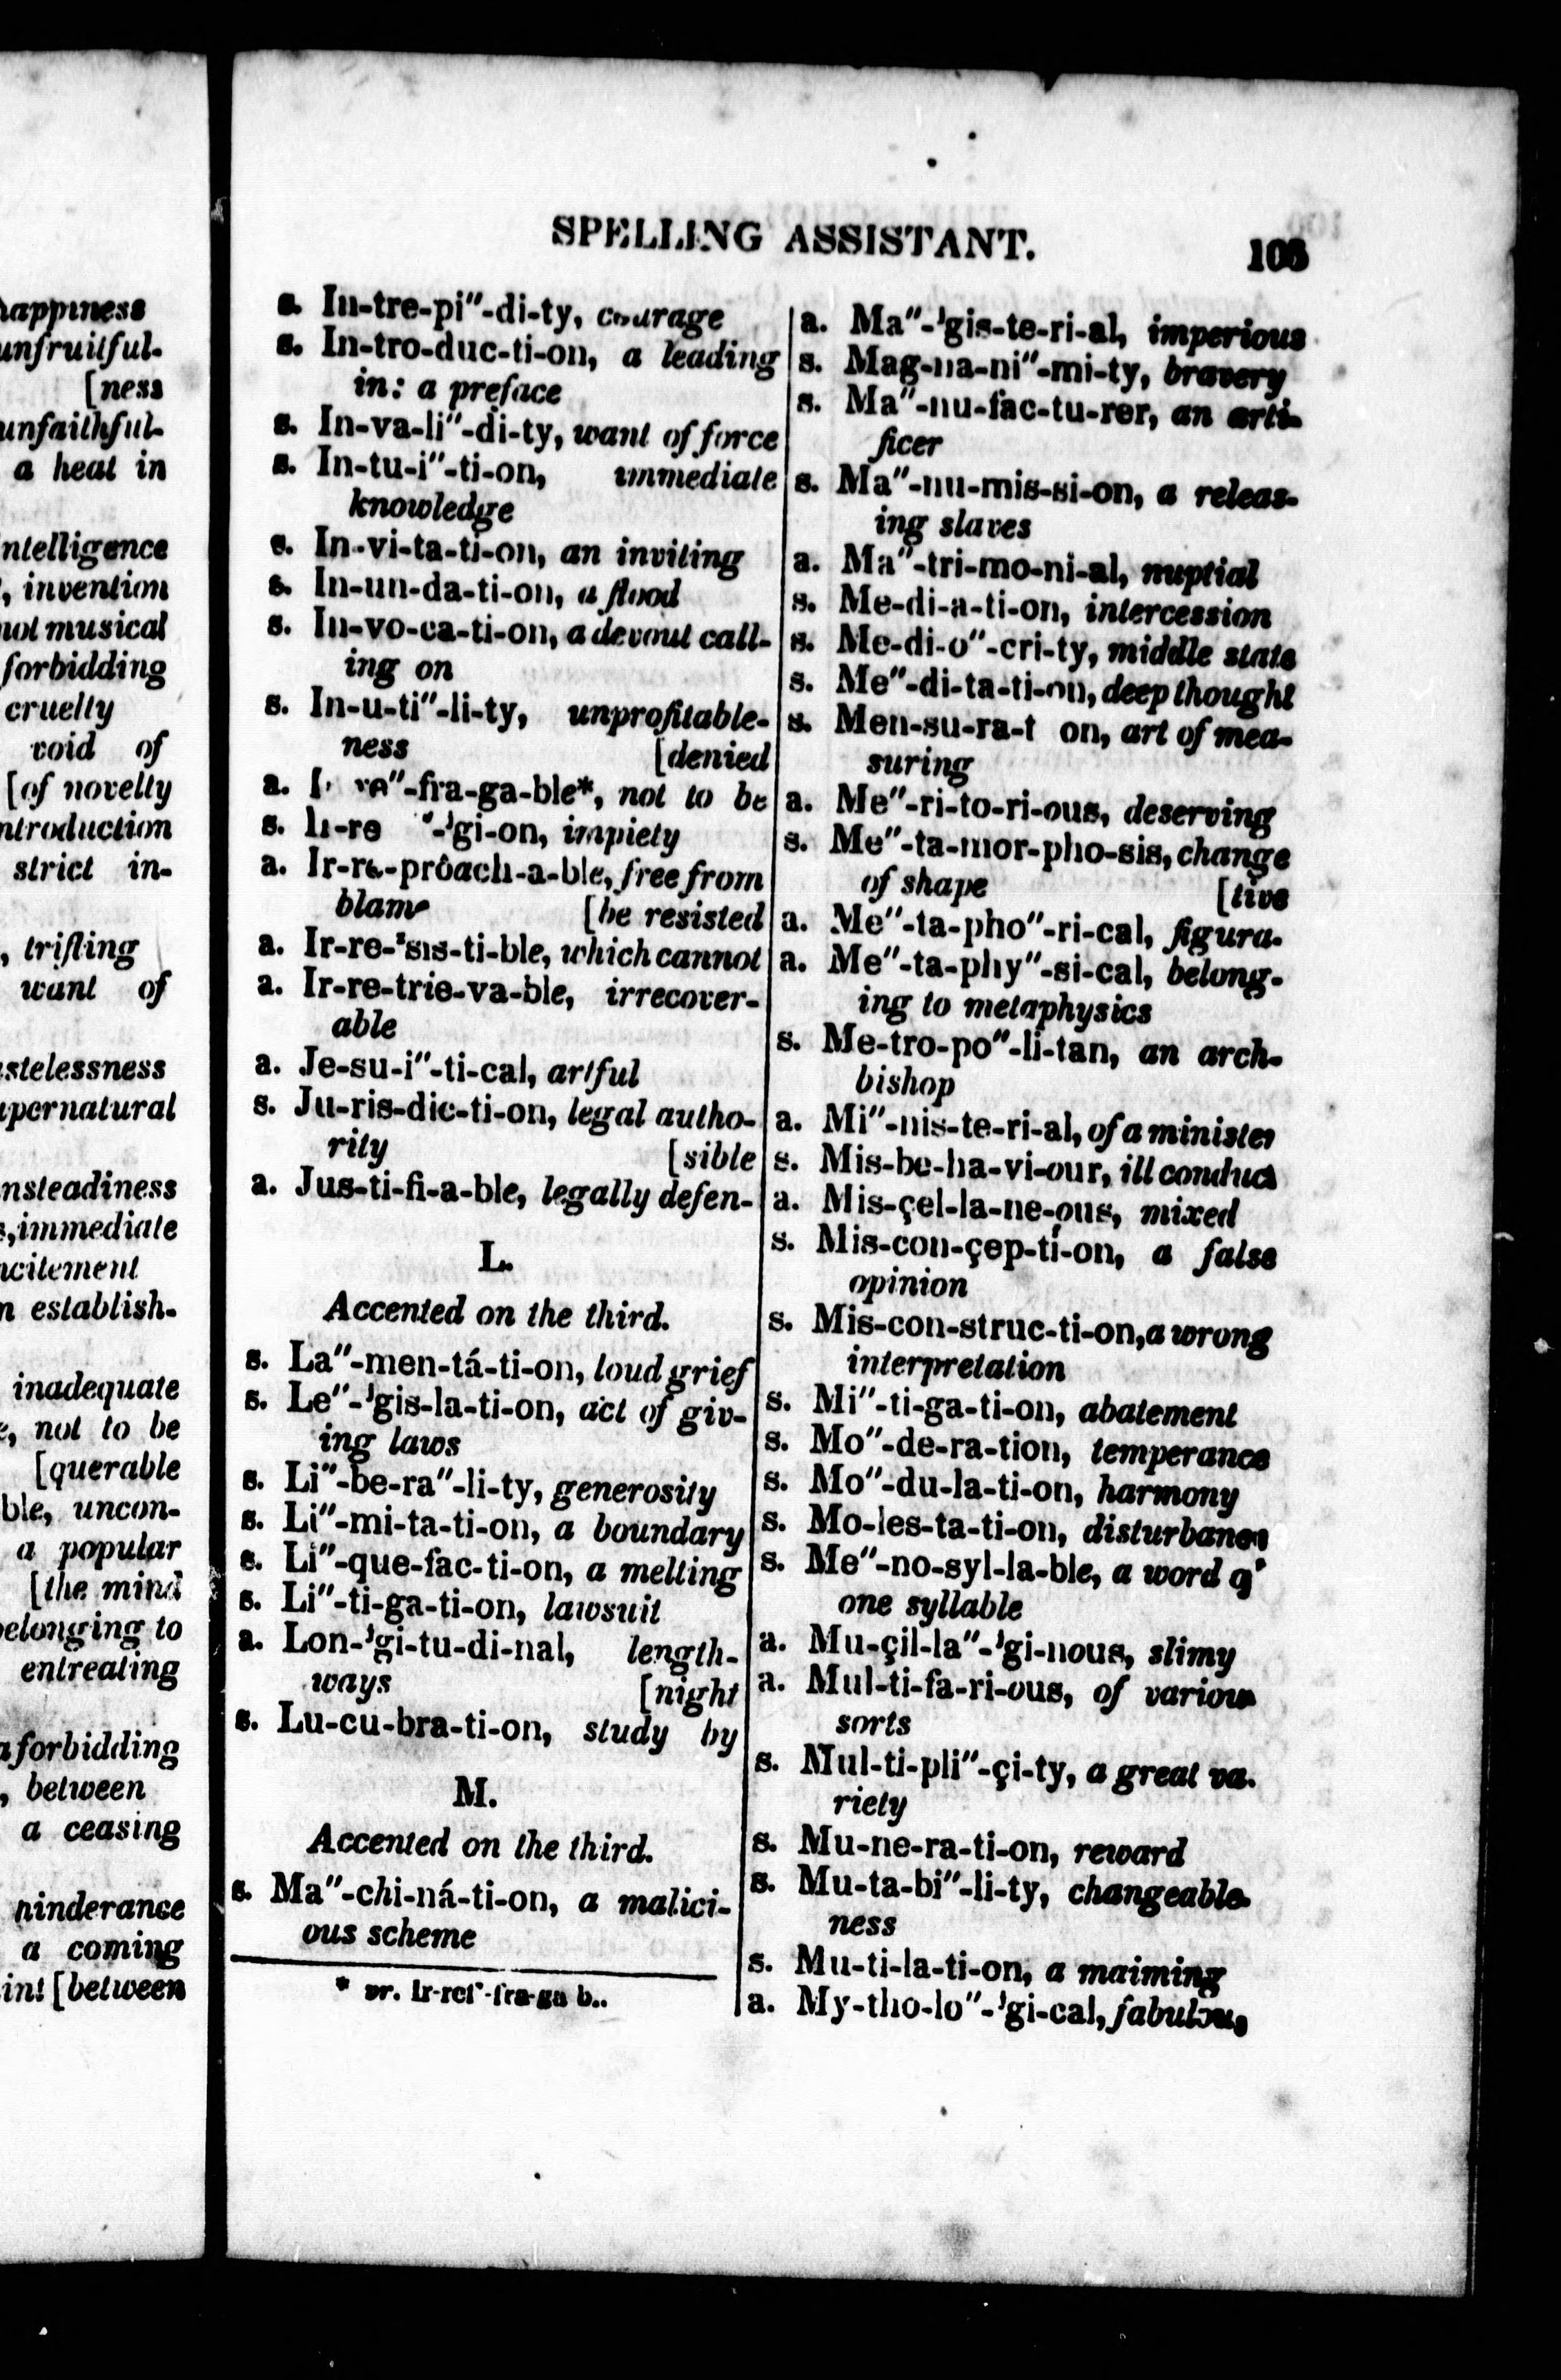 happiness
unfruitful-
[ness
unfaithful-
a heat in
ntelligence
, invention
not musical
forbidding
cruelty
void of
[of novelty
ntroduction
strict in-
, trifling
want of
stelessness
pernatural
nsteadiness
s, immediate
citement
n establish-
inadequate
e, not to be
[querable
ble, uncon-
a popular
[the mind
elonging to
entreating
a forbidding
, between
a ceasing
hinderance
a coming
int [between
SPELLING ASSISTANT. 103
s. In-tre-pi″-di-ty, courage
s. In-tro-duc-ti-on, a leading
in: a preface
s. In-va-li″-di-ty, want of force
s. In-tu-i″-ti-on, immediate
knowledge
s. In-vi-ta-ti-on, an inviting
s. In-un-da-ti-on, a flood
s. In-vo-ca-ti-on, a devout call-
ing on
s. In-u-ti″-li-ty, unprofitable-
ness [denied
a. re″-fra-ga-ble*, not to be
s. Ir-re ″-ʹgi-on, impiety
a. Ir-re-prôach-a-ble, free from
blame [be resisted
a. Ir-re-ˢsis-ti-ble, which cannot
a. Ir-re-trie-va-ble, irrecover-
able
a. Je-su-i″-ti-cal, artful
s. Ju-ris-dic-ti-on, legal autho-
rity [sible
a. Jus-ti-fi-a-ble, legally defen-
L.
Accented on the third.
s. La″-men-tá-ti-on, loud grief
s. Le″-ʹgis-la-ti-on, act of giv-
ing laws
s. Li″-be-ra″-li-ty, generosity
s. Li″-mi-ta-ti-on, a boundary
s. Li″-que-fac-ti-on, a melting
s. Li″-ti-ga-ti-on, lawsuit
a. Lon-ʹgi-tu-di-nal, length-
ways [night
s. Lu-cu-bra-ti-on, study by
M.
Accented on the third.
s. Ma″-chi-ná-ti-on, a malici-
ous scheme
* or. Ir-ref″-fra-ga b..
a. Ma″-ʹgis-te-ri-al, imperious
s. Mag-na-ni″-mi-ty, bravery
s. Ma″-nu-fac-tu-rer, an arti-
ficer
s. Ma″-nu-mis-si-on, a releas-
ing slaves
a. Ma″-tri-mo-ni-al, nuptial
s. Me-di-a-ti-on, intercession
s. Me-di-o″-cri-ty, middle state
s. Me″-di-ta-ti-on, deep thought
s. Men-su-ra-t on, art of mea-
suring
a. Me″-ri-to-ri-ous, deserving
s. Me″-ta-mor-pho-sis, change
of shape [tive
a. Me″-ta-pho″-ri-cal, figura-
a. Me″-ta-phy″-si-cal, belong-
ing to metaphysics
s. Me-tro-po″-li-tan, an arch-
bishop
a. Mi″-nis-te-ri-al, of a minister
s. Mis-be-ha-vi-our, ill conduct
a. Mis-çel-la-ne-ous, mixed
s. Mis-con-çep-ti-on, a false
opinion
s. Mis-con-struc-ti-on, a wrong
interpretation
s. Mi″-ti-ga-ti-on, abatement
s. Mo″-de-ra-tion, temperance
s. Mo″-du-la-ti-on, harmony
s. Mo-les-ta-ti-on, disturbance
s. Me″-no-syl-la-ble, a word of
one syllable
a. Mu-çil-la″-ʹgi-nous, slimy
a. Mul-ti-fa-ri-ous, of various
sorts
s. Mul-ti-pli″-çi-ty, a great va-
riety
s. Mu-ne-ra-ti-on, reward
s. Mu-ta-bi″-li-ty, changeable-
ness
s. Mu-ti-la-ti-on, a maiming
a. My-tho-lo″-ʹgi-cal, fabulous